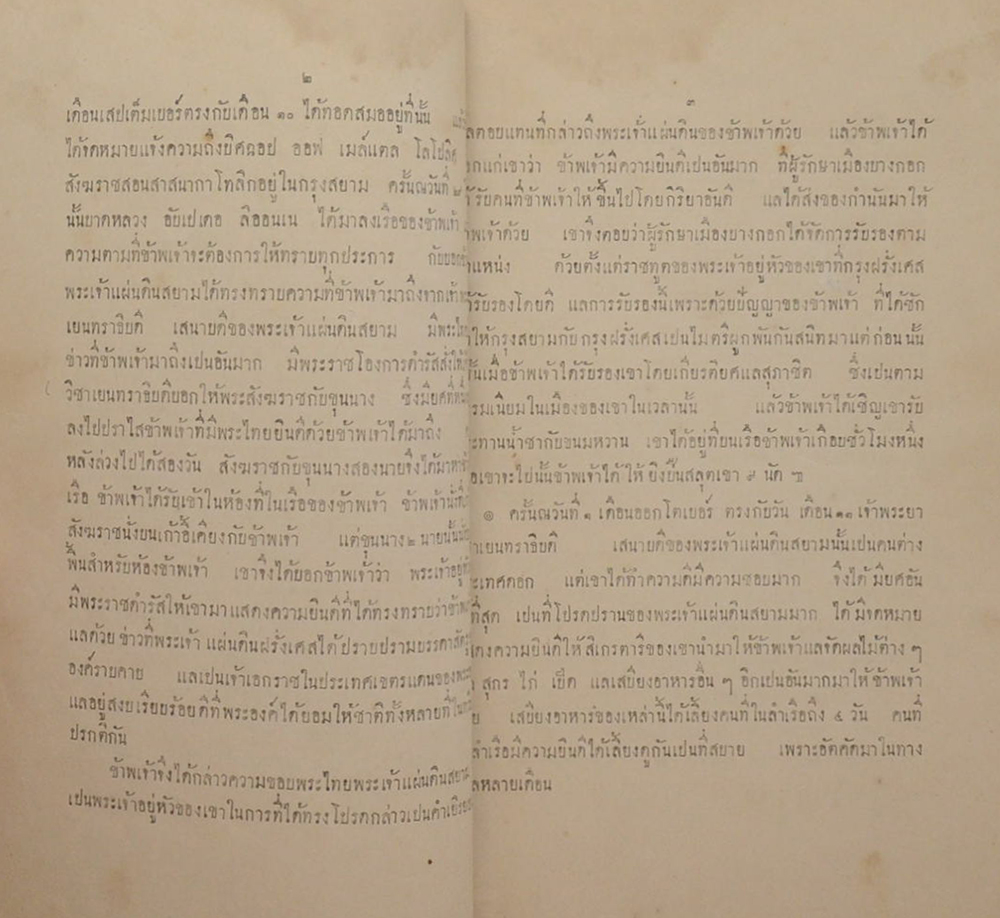 ๒
เดือนเสปเต็มเบอร์ตรงกับเดือน ๑๐ ได้ทอดสมออยู่ที่นั้น
ได้จดหมายแจ้งความถึงบิศฉอป ออฟ เมล์แตล โลโปลิศ
สังฆราชสอนสาสนากาโทลิกอยู่ในกรุงสยาม ครั้นณวันที่ ๒
นั้นบาดหลวง อับเปเดอ ลิออนเน ได้มาลงเรือของข้าพเจ้า
ความตามที่ข้าพเจ้าจะต้องการให้ทราบทุกประการ
พระเจ้าแผ่นดินสยามได้ทรงทราบความที่ข้าพเจ้ามาถึงจาก
เยนทราธิบดี เสนาบดีของพระเจ้าแผ่นดินสยาม
ข่าวที่ข้าพเจ้ามาถึงเปนอันมาก มีพระราชโองการดำรัสสั่งให้
วิชาเยนทราธิบดีบอกให้พระสังฆราชกับขุนนาง ซึ่งมียศ
ลงไปปราไสข้าพเจ้าที่มีพระไทยยินดีด้วยข้าพเจ้าได้มาถึง
หลังล่วงไปได้สองวัน สังฆราชกับขุนนางสองนายจึงได้มา
เรือ ข้าพเจ้าได้รับเข้าในห้องที่ในเรือของข้าพเจ้า ข้าพเจ้า
สังฆราชนั่งบนเก้าอี้เคียงกับข้าพเจ้า แต่ขุนนาง ๒ นายนั้น
พื้นสำหรับห้องข้าพเจ้า เขาจึงได้บอกข้าพเจ้าว่า
มีพระราชดำรัสให้เขามาแสดงความยินดีที่ได้ทรงทราบว่า
แลด้วยข่าวที่พระเจ้าแผ่นดินฝรั่งเศสได้ปราบปรามบรรดาศัตรู
องค์ราบคาบ แลเปนเจ้าเอกราชในประเทศเขตรแดนของ
แลอยู่สงบเรียบร้อยดีที่พระองค์ได้ยอมให้ชาติทั้งหลาย
ปรกติกัน
ข้าพเจ้าจึงได้กล่าวความขอบพระไทยพระเจ้าแผ่นดินสยาม
เปนพระเจ้าอยู่หัวของเขาในการที่ได้ทรงโปรดกล่าวเปน
๓
ตอบแทนที่กล่าวถึงพระเจ้าแผ่นดินของข้าพเจ้าด้วย แล้วข้าพเจ้าได้
แก่เขาว่า ข้าพเจ้ามีความยินดีเปนอันมาก ที่ผู้รักษาเมืองบางกอก
รับคนที่ข้าพเจ้าให้ขึ้นไปโดยกิริยาอันดี แลได้ส่งของกำนันมาให้
ด้วย เขาจึงตอบว่าผู้รักษาเมืองบางกอกได้จัดการรับรองตาม
ด้วยตั้งแต่ราชทูตของพระเจ้าอยู่หัวของเขาที่กรุงฝรั่งเศส
รับรองโดยดี แลการรับรองนี้เพราะด้วยปัญญาของข้าพเจ้า ที่ได้ชัก
ให้กรุงสยามกับกรุงฝรั่งเศสเปนไมตรีผูกพันกันสนิทมาแต่ก่อนนั้น
เมื่อข้าพเจ้าได้รับรองเขาโดยเกียรติยศแลสุภาพดี ซึ่งเปนตาม
ธรรมเนียมในเมืองของเขาในเวลานั้น แล้วข้าพเจ้าได้เชิญเขารับ
ประทานน้ำชากับขนมหวาน เขาได้อยู่ที่บนเรือข้าพเจ้าเกือบชั่วโมงหนึ่ง
เขาจะไปนั้นข้าพเจ้าได้ให้ยิงปืนสลุตเขา ๙ นัด ฯ
๏ ครั้นณวันที่ ๑ เดือนออกโตเบอร์ ตรงกับวัน เดือน ๑๑ เจ้าพระยา
วิชาเยนทราธิบดี เสนาบดีของพระเจ้าแผ่นดินสยามนั้นเปนคนต่าง
ประเทศดอก แต่เขาได้ทำความดีมีความชอบมาก จึงได้มียศอัน
ที่สุด เปนที่โปรดปรานของพระเจ้าแผ่นดินสยามมาก ได้มีจดหมาย
แสดงความยินดีให้สิเกรตารีของเขานำมาให้ข้าพเจ้าแลจัดผลไม้ต่าง ๆ
สุกร ไก่ เป็ด แลเสบียงอาหารอื่น ๆ อีกเปนอันมากมาให้ข้าพเจ้า
เสบียงอาหารของเหล่านี้ได้เลี้ยงคนที่ในลำเรือถึง ๔ วัน คนที่
ลำเรือมีความยินดีได้เลี้ยงดูกันเปนที่สบาย เพราะอัตคัดมาในทาง
หลายเดือน